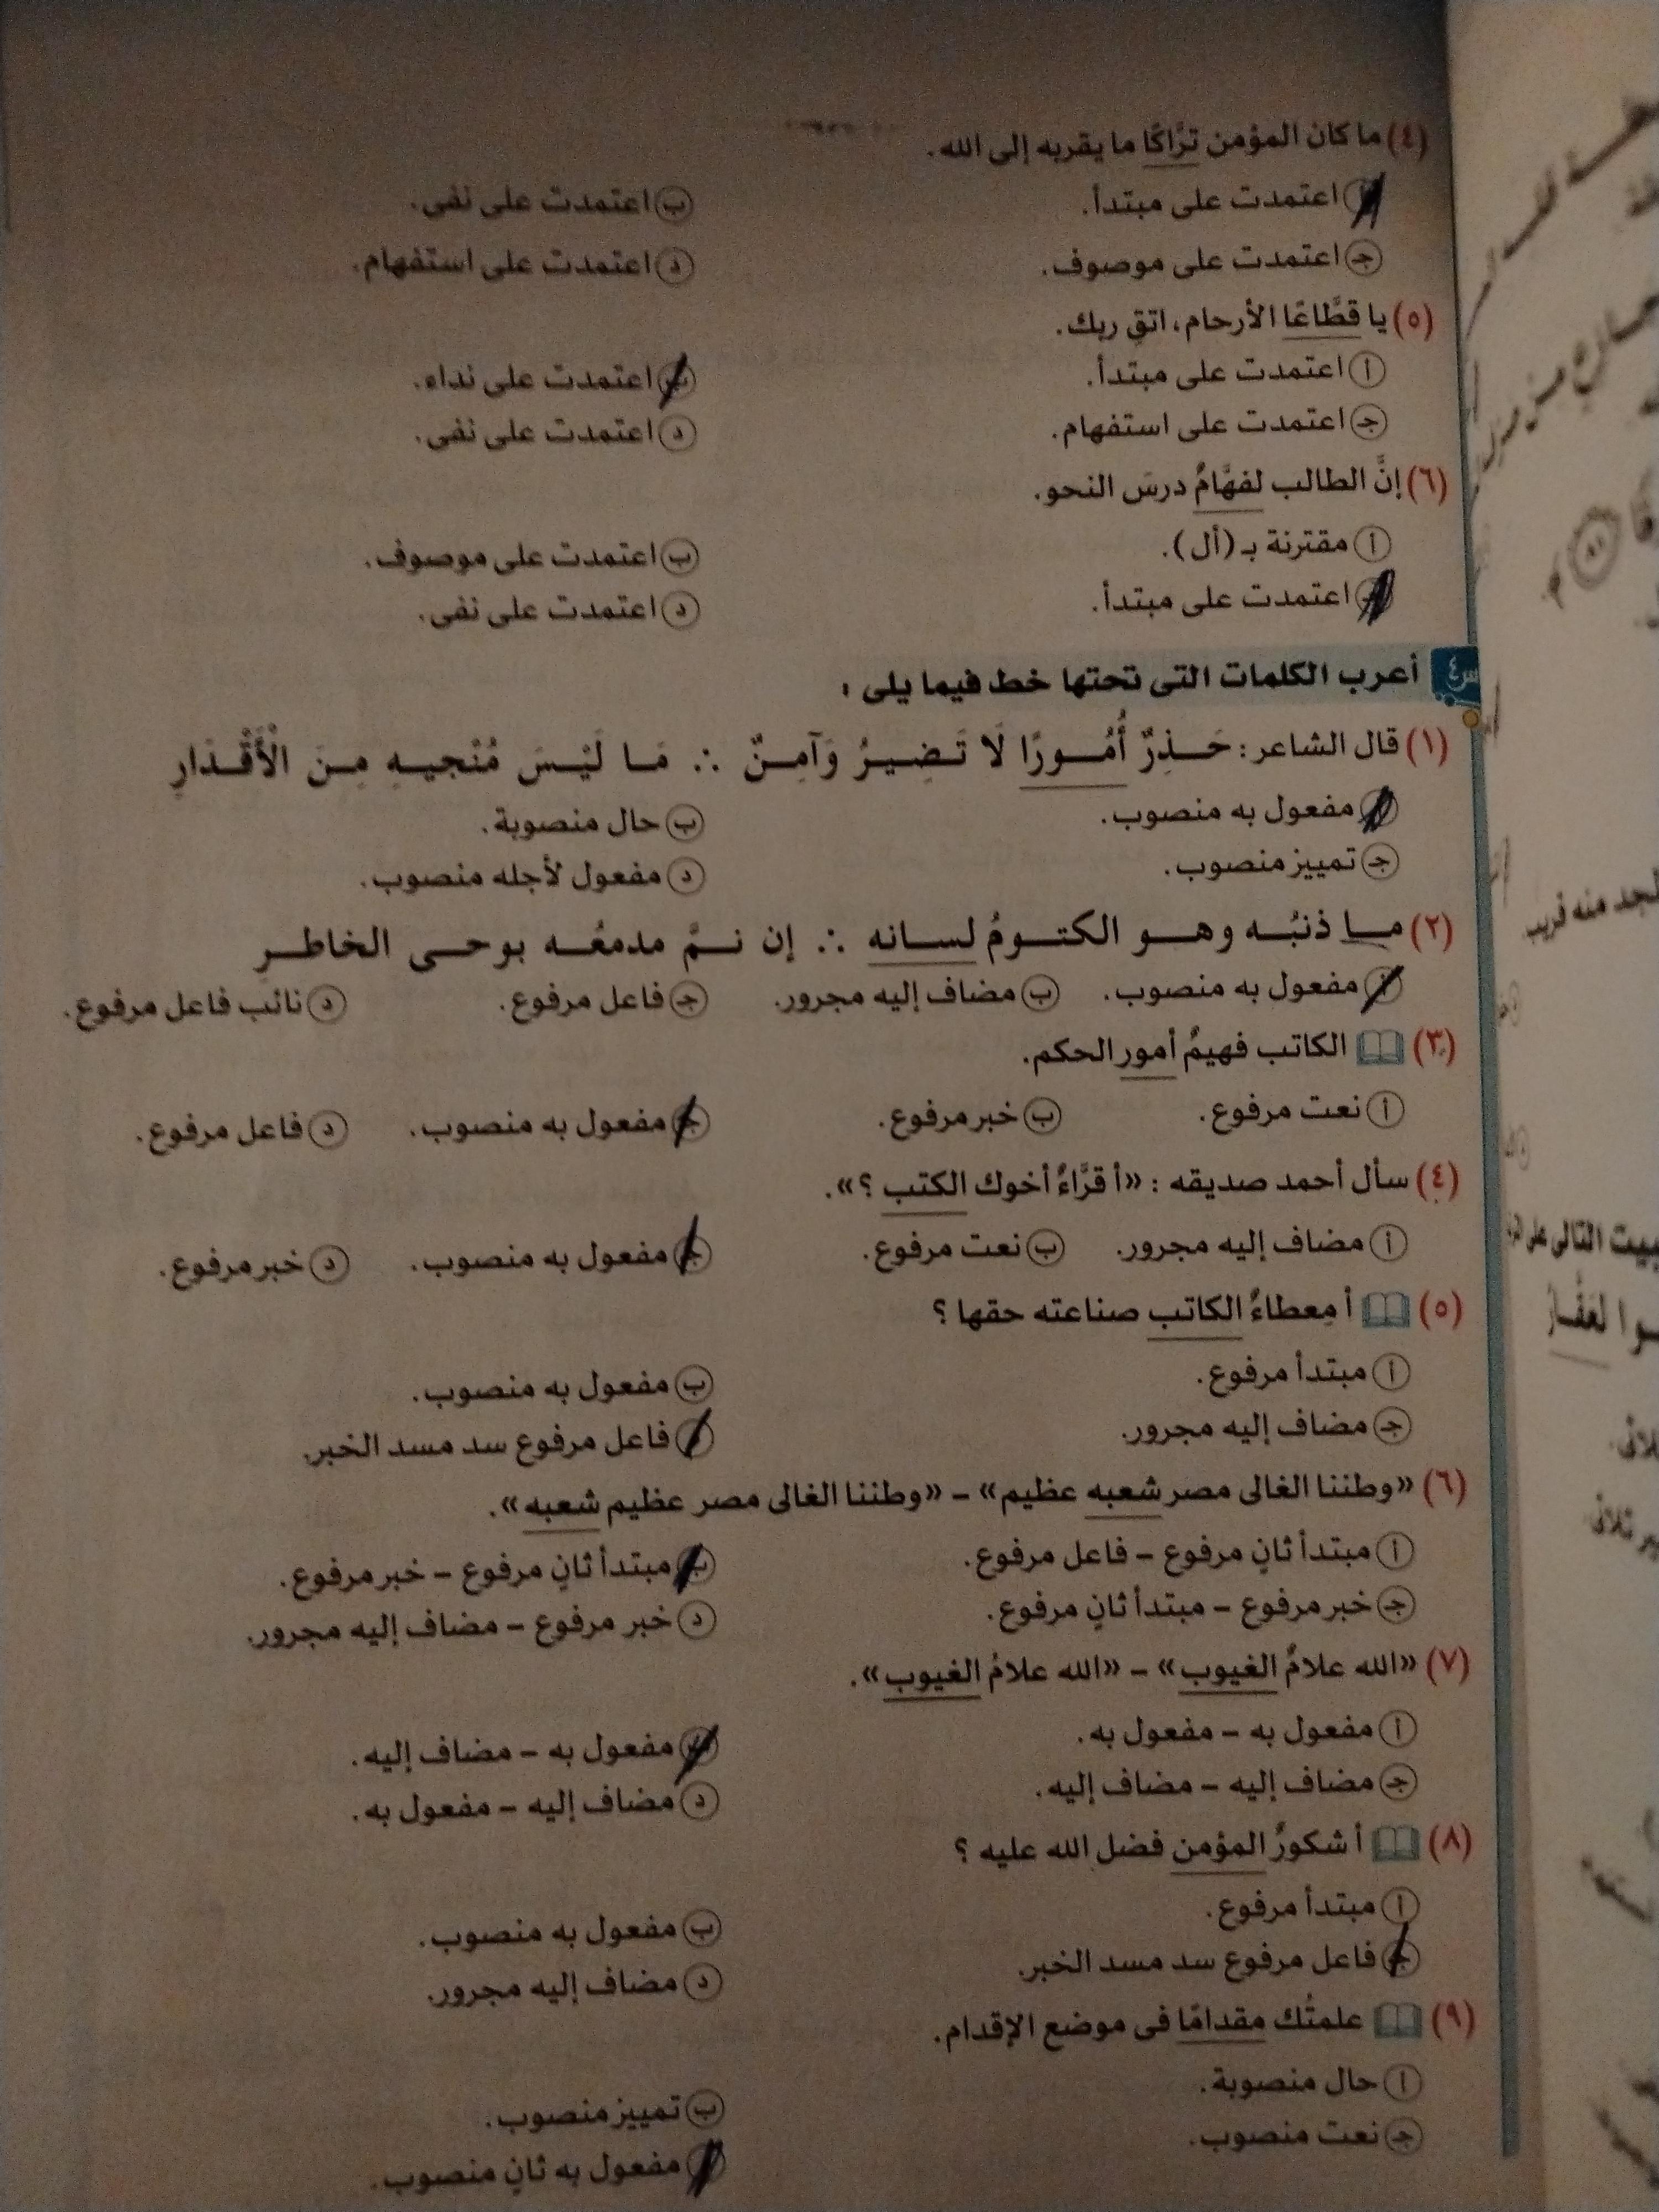 (٤) ما كان المؤمن ترَّاكًا ما يقربه إلى الله.
أ اعتمدت على مبتدأ. ب اعتمدت على نفى.
جـ اعتمدت على موصوف. د اعتمدت على استفهام.
(٥) يا قطَّاعًا الأرحام، اتقِ ربك.
أ اعتمدت على مبتدأ. ب اعتمدت على نداء.
جـ اعتمدت على استفهام. د اعتمدت على نفى.
(٦) إنَّ الطالب لفهَّامٌ درسَ النحو.
أ مقترنة بـ (أل). ب اعتمدت على موصوف.
جـ اعتمدت على مبتدأ. د اعتمدت على نفى.
س٤ أعرب الكلمات التى تحتها خط فيما يلى :
(١) قال الشاعر : حَـذِرٌ أُمُـورًا لَا تَـضِيـرُ وَآمِـنٌ ∴ مَـا لَيْـسَ مُنْجيـهِ مِـنَ الْأَقْـدَارِ
أ مفعول به منصوب. ب حال منصوبة.
جـ تمييز منصوب. د مفعول لأجله منصوب.
(٢) مـا ذنبُـه وهـو الكتـومُ لسـانه ∴ إن نـمَّ مدمعُـه بوحـى الخاطـرِ
أ مفعول به منصوب. ب مضاف إليه مجرور. جـ فاعل مرفوع. د نائب فاعل مرفوع.
(٣) الكاتب فهيمٌ أمور الحكم.
أ نعت مرفوع. ب خبر مرفوع. جـ مفعول به منصوب. د فاعل مرفوع.
(٤) سأل أحمد صديقه : «أ قرَّاءٌ أخوك الكتب ؟».
أ مضاف إليه مجرور. ب نعت مرفوع. جـ مفعول به منصوب. د خبر مرفوع.
(٥) أ مِعطاءٌ الكاتب صناعته حقها ؟
أ مبتدأ مرفوع. ب مفعول به منصوب.
جـ مضاف إليه مجرور. د فاعل مرفوع سد مسد الخبر.
(٦) «وطننا الغالى مصر شعبه عظيم» – «وطننا الغالى مصر عظيم شعبه».
أ مبتدأ ثانٍ مرفوع – فاعل مرفوع. ب مبتدأ ثانٍ مرفوع – خبر مرفوع.
جـ خبر مرفوع – مبتدأ ثانٍ مرفوع. د خبر مرفوع – مضاف إليه مجرور.
(٧) «الله علامٌ الغيوب» – «الله علامُ الغيوب».
أ مفعول به – مفعول به. ب مفعول به – مضاف إليه.
جـ مضاف إليه – مضاف إليه. د مضاف إليه – مفعول به.
(٨) أ شكورٌ المؤمن فضل الله عليه ؟
أ مبتدأ مرفوع. ب مفعول به منصوب.
جـ فاعل مرفوع سد مسد الخبر. د مضاف إليه مجرور.
(٩) علمتُك مقدامًا فى موضع الإقدام.
أ حال منصوبة. ب تمييز منصوب.
جـ نعت منصوب. د مفعول به ثانٍ منصوب.